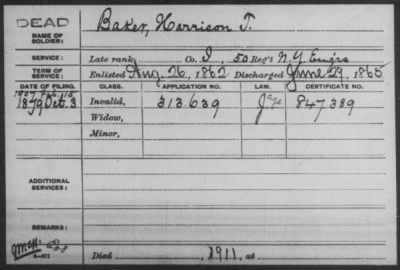 DEAD
NAME OF SOLDIER: Baker, Harrison T.
SERVICE: Late rank, Co. I, 50 Reg't N.Y. Engrs
TERM OF SERVICE: Enlisted Aug. 26, 1862 Discharged June 29, 1865
DATE OF FILING. CLASS. APPLICATION NO. LAW. CERTIFICATE NO.
1879 Oct. 3 Invalid, 313.639 847339
Widow,
Minor,
ADDITIONAL SERVICES:
REMARKS:
Died 1911, at